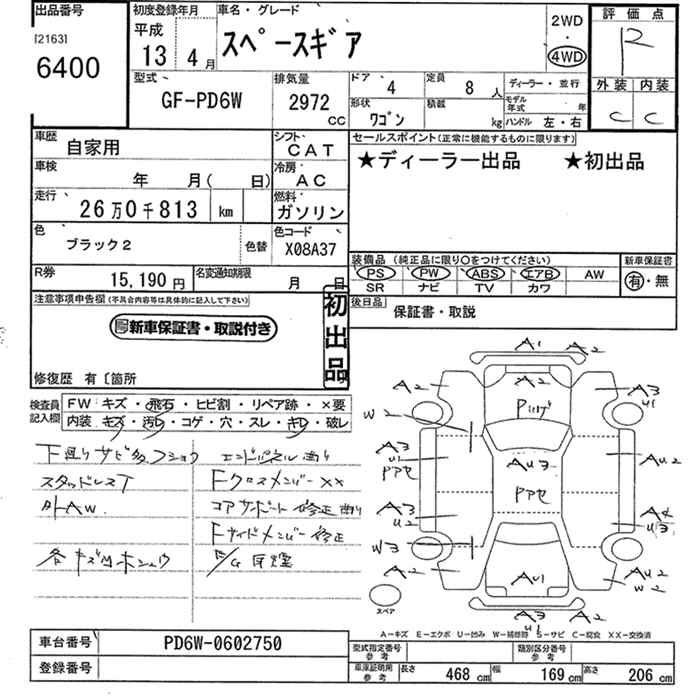 出品番号 初度登録年月 車名・グレード 2WD 評価点
[2163] 平成
6400 13 4月 スペースギア 4WD R
型式 排気量 ドア 4 定員 8人 ディーラー・並行 外装 内装
GF-PD6W 2972 CC 形状 ワゴン 積載 kg モデル年式 年 ハンドル 左・右 C C
車歴 自家用 シフト CAT セールスポイント(正常に機能するものに限ります)
車検 年 月( 日) 冷房 AC ★ディーラー出品 ★初出品
走行 26万0千813 km 燃料 ガソリン
色 ブラック2 色替 色コード X08A37
装備品 (純正品に限り○をつけてください) 新車保証書
R券 15,190円 名変通知期限 月 日 PS PW ABS エアB AW 有・無
SR ナビ TV カワ
注意事項申告欄(不具合内容等は具体的に記入して下さい) 初出品 後日品 保証書・取説
新車保証書・取説付き
修復歴 有〔箇所
検査員記入欄 FW キズ・飛石・ヒビ割・リペア跡・×要
内装 キズ・汚れ・コゲ・穴・スレ・キレ・破レ
下廻りサビ多フショク エンドパネル曲り
スタッドレスT Fクロスメンバー××
外AW コアサポート修正曲り
Fサイドメンバー修正
各キズ凹ホシュウ E/G白煙
A1 A2
A2 A2 A3 U1
W2
A3 U1 AU3 AU2
ププセ ププセ
A3 U2 A4 U3
W3
A2 AU1 AU2 W2
スペア A3 U1 A2
A−キズ E−エクボ U−凹み W−補修跡 S−サビ C−腐食 XX−交換済
車台番号 PD6W-0602750 型式指定番号 参考 類別区分番号 参考
登録番号 車庫証明用 参考 長さ 468 cm 幅 169 cm 高さ 206 cm